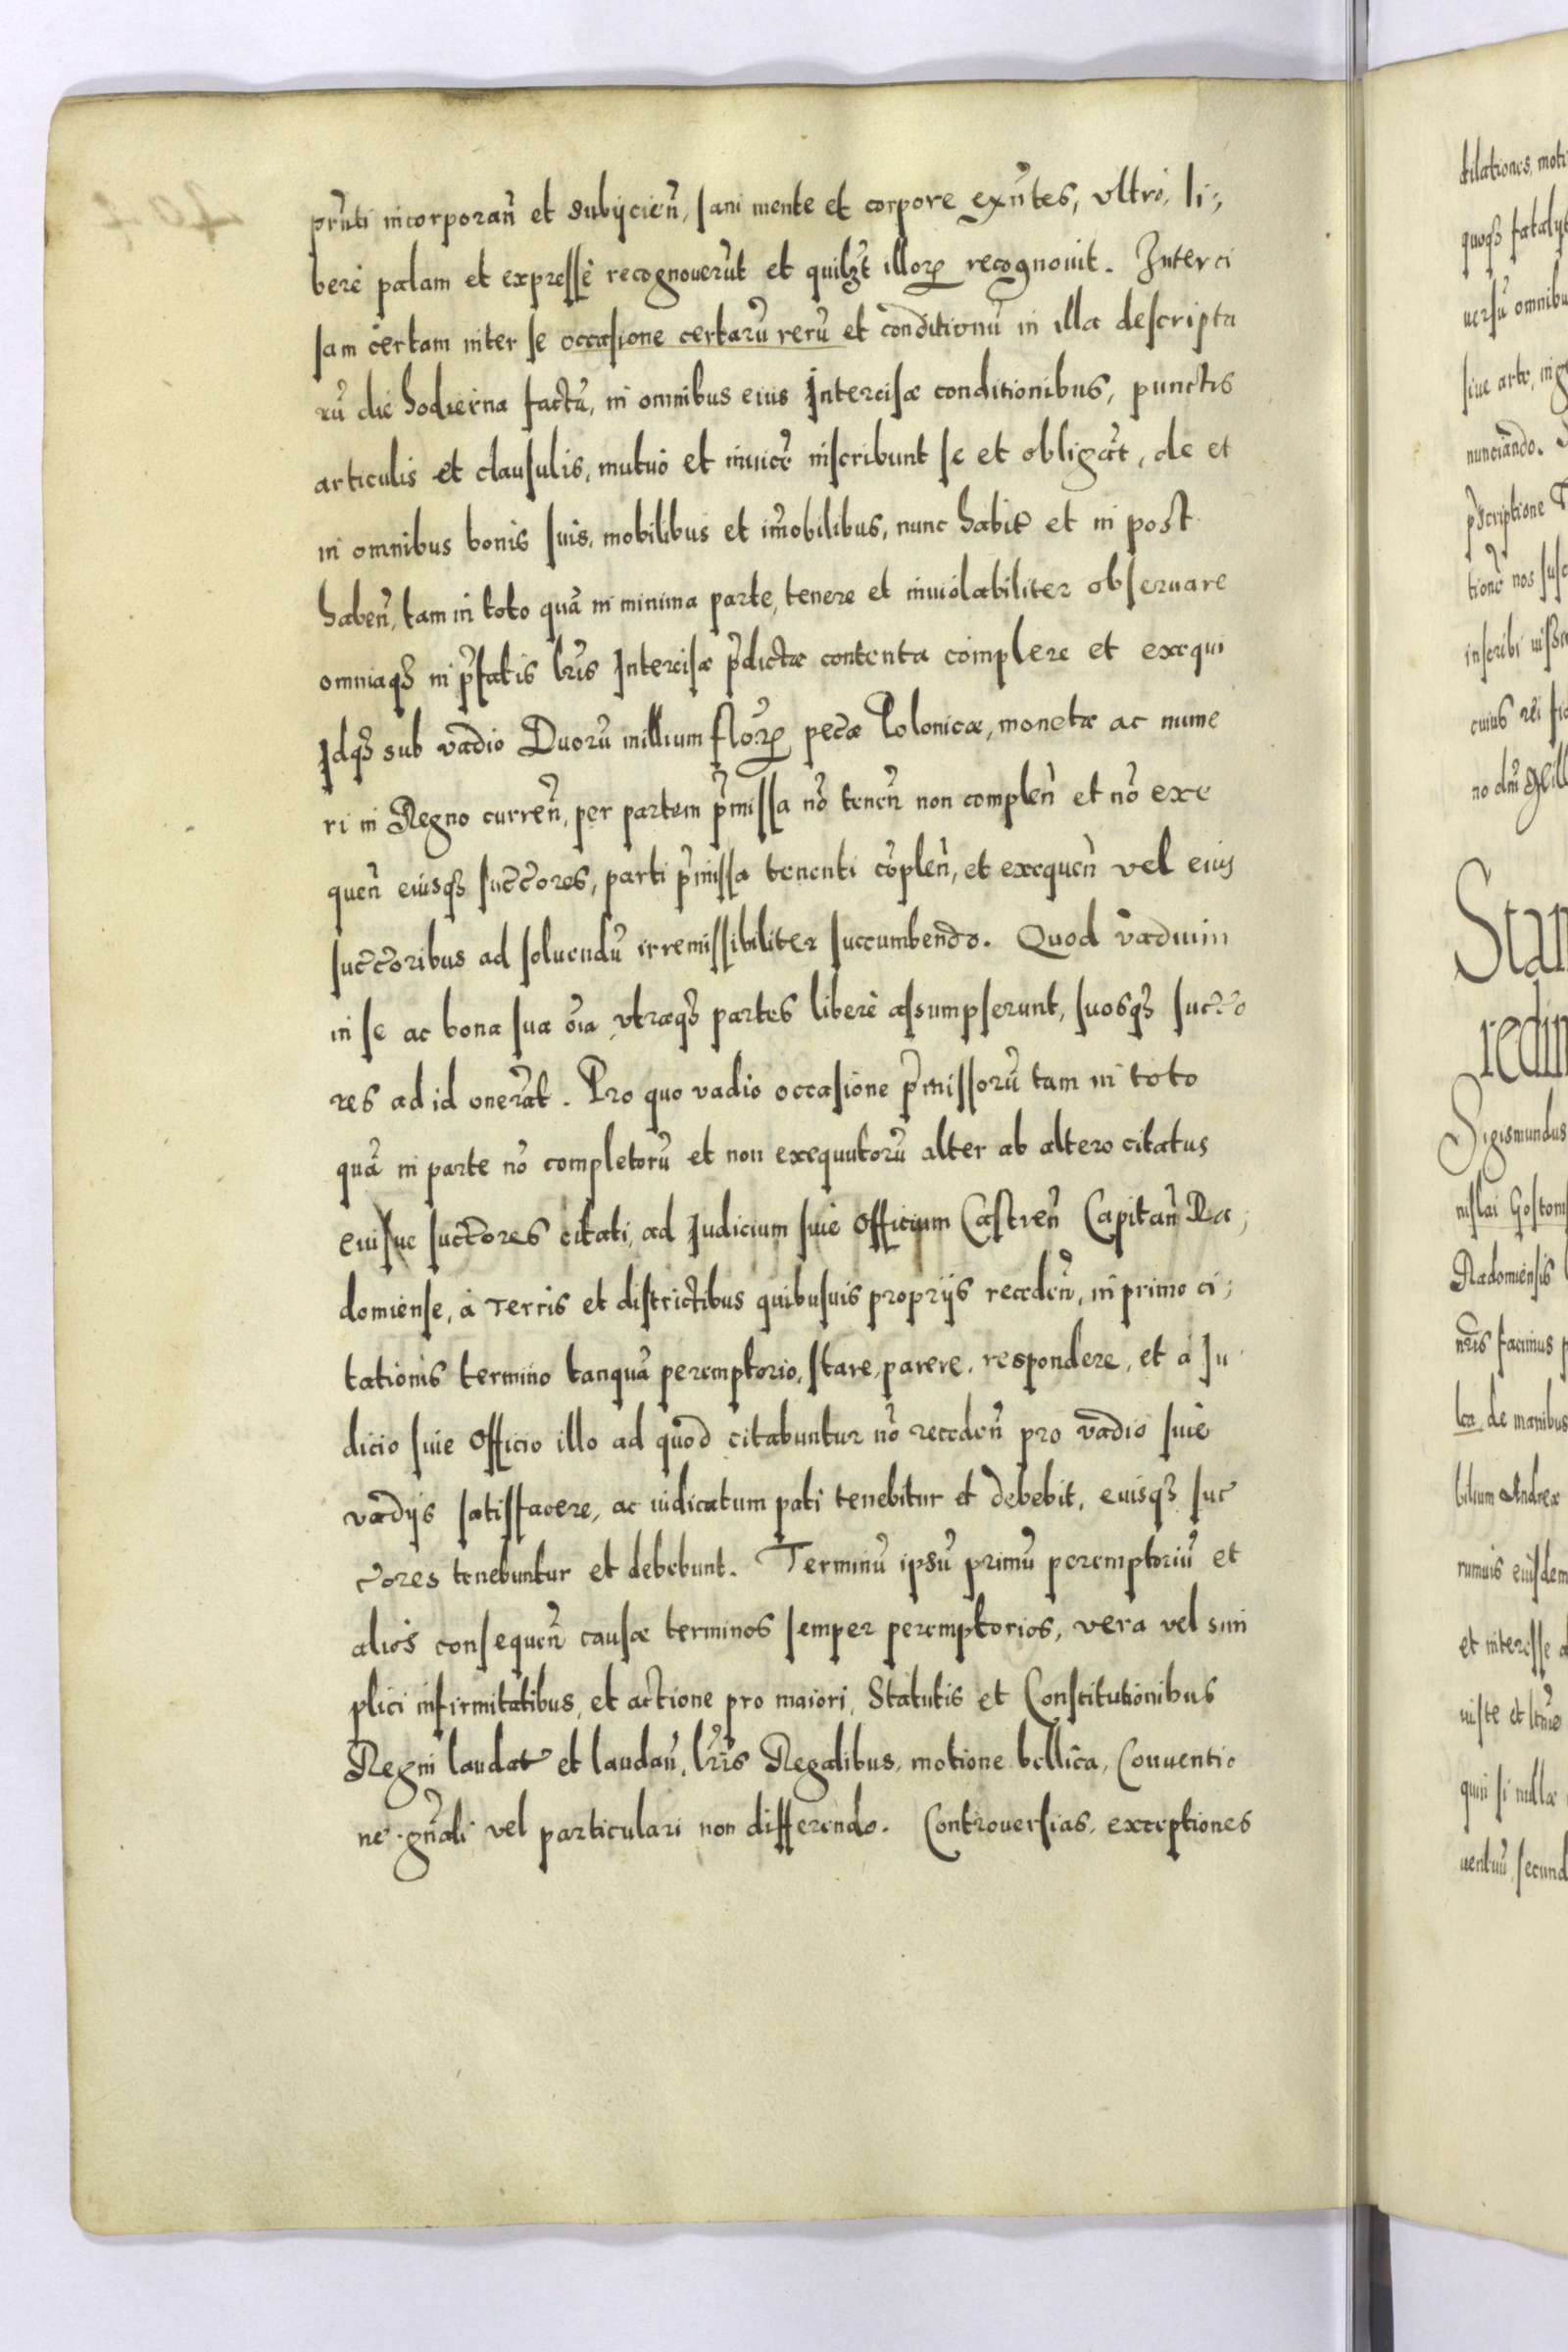 prñti incorporañ et subijcieñ, sani mente et corpore exñtes, vltrò, li;
berè palam et expressè recognouerũt et quilꝫt illoꝝ recognouit. Interci
sam certam inter se occasione certarũ rerũ et conditionũ in illa descripta
rũ die hodierna factã, in omnibus eius Intercisæ conditionibus, punctis
articulis et clausulis, mutuò et inuicẽ inscribunt se et obligãt, de et
in omnibus bonis suis, mobilibus et im̃obilibus, nunc habit̃ et in post
habeñ, tam in toto quã in minima parte, tenere et inuiolabiliter obseruare
omniaqꝫ in p̃fatis lr̃is Intercisæ p̃dictæ contenta complere et exequi
Idqꝫ sub vadio Duorũ millium floꝝ pecæ Polonicæ, monetæ ac nume
ri in Regno curreñ, per partem p̃missa nõ teneñ non compleñ et nõ exe
queñ eiusqꝫ succ̃ores, parti p̃missa tenenti cõpleñ, et exequeñ vel eius
succ̃oribus ad soluendũ irremissibiliter succumbendo. Quod vadium
in se ac bona sua õia, vtræqꝫ partes liberè assumpserunt, suosqꝫ succ̃o
res ad id onerãt. Pro quo vadio occasione p̃missorũ tam in toto
quã in parte nõ completorũ et non exequutorũ alter ab altero citatus
eiusue succ̃ores citati, ad Iudicium siue Officium Castreñ Capitañ Ra;
domiense, à Terris et districtibus quibusuis proprijs recedeñ, in primo ci;
tationis termino tanquã peremptorio, stare, parere, respondere, et à Iu
dicio siue Officio illo ad quod citabuntur nõ recedeñ pro vadio siuè
vadijs satisfacere, ac iudicatum pati tenebitur et debebit, eiusqꝫ suc
c̃ores tenebuntur et debebunt. Terminũ ipsũ primũ peremptoriũ et
alios consequeñ causæ terminos semper peremptorios, vera vel sim
plici infirmitatibus, et actione pro maiori, Statutis et Constitutionibus
Regni laudat̃ et laudañ, lr̃is Regalibus, motione bellica, Conuentio
ne gñali vel particulari non differendo. Controuersias, exceptiones
dilationes, moti
quoqꝫ fatalij
uersũ omnibu
siue arte, inge
nunciando.
p̃scriptione
tionẽ nos susc
inscribi
cuius rei fi
Stan
redim
Sigismundus
nislai Gostom
Radomiensis
nr̃is facimus p
lca de manibus
bilium Andreæ
rumuis eiusdem
et interesse a
quin si nullæ
secund